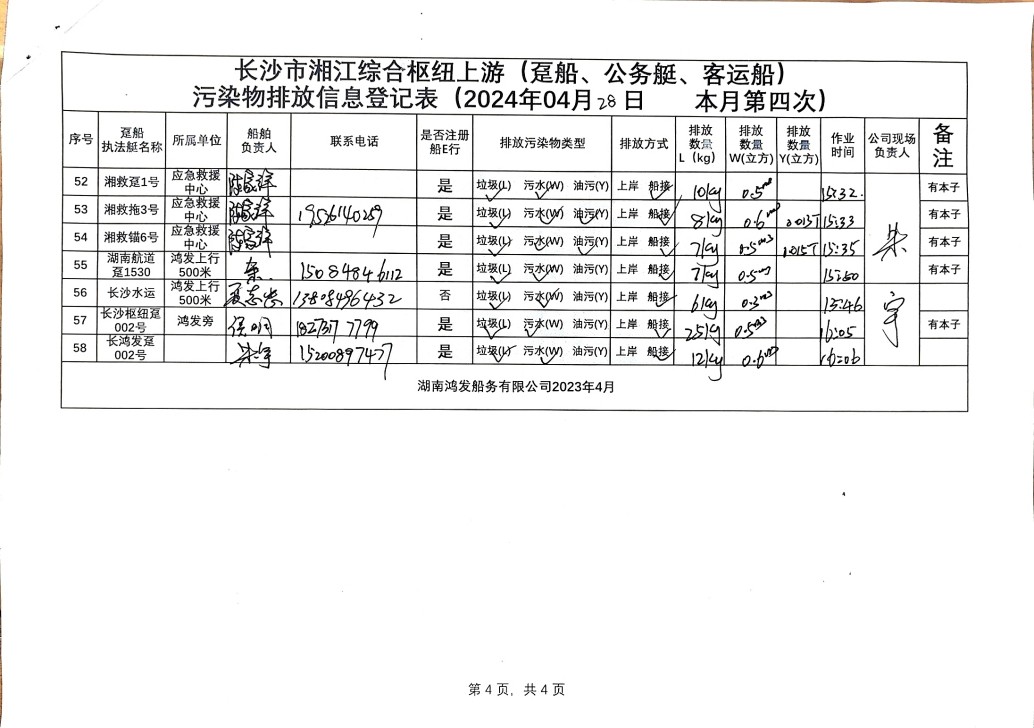 长沙市湘江综合枢纽上游（趸船、公务艇、客运船）
污染物排放信息登记表（2024年04月28日 本月第四次）
序号 趸船执法艇名称 所属单位 船舶负责人 联系电话 是否注册船E行 排放污染物类型 排放方式 排放数量L（kg） 排放数量W(立方) 排放数量Y(立方) 作业时间 公司现场负责人 备注
52 湘救趸1号 应急救援中心 是 垃圾(L) 污水(W) 油污(Y) 上岸 船接 10kg 0.5m3 15:32 有本子
53 湘救拖3号 应急救援中心 19556140259 是 垃圾(L) 污水(W) 油污(Y) 上岸 船接 8kg 0.6m3 0.013T 15:33 有本子
54 湘救锚6号 应急救援中心 是 垃圾(L) 污水(W) 油污(Y) 上岸 船接 7kg 0.5m3 0.015T 15:35 有本子
55 湖南航道趸1530 鸿发上行500米 15084846112 是 垃圾(L) 污水(W) 油污(Y) 上岸 船接 7kg 0.5m3 15:50 有本子
56 长沙水运 鸿发上行500米 13808496432 否 垃圾(L) 污水(W) 油污(Y) 上岸 船接 6kg 0.3m3 15:46
57 长沙枢纽趸002号 鸿发旁 18273177799 是 垃圾(L) 污水(W) 油污(Y) 上岸 船接 25kg 0.5m3 16:05 有本子
58 长鸿发趸002号 朱宇 15200897477 是 垃圾(L) 污水(W) 油污(Y) 上岸 船接 12kg 0.6m3 16:06
朱宇
湖南鸿发船务有限公司2023年4月
第 4 页，共 4 页